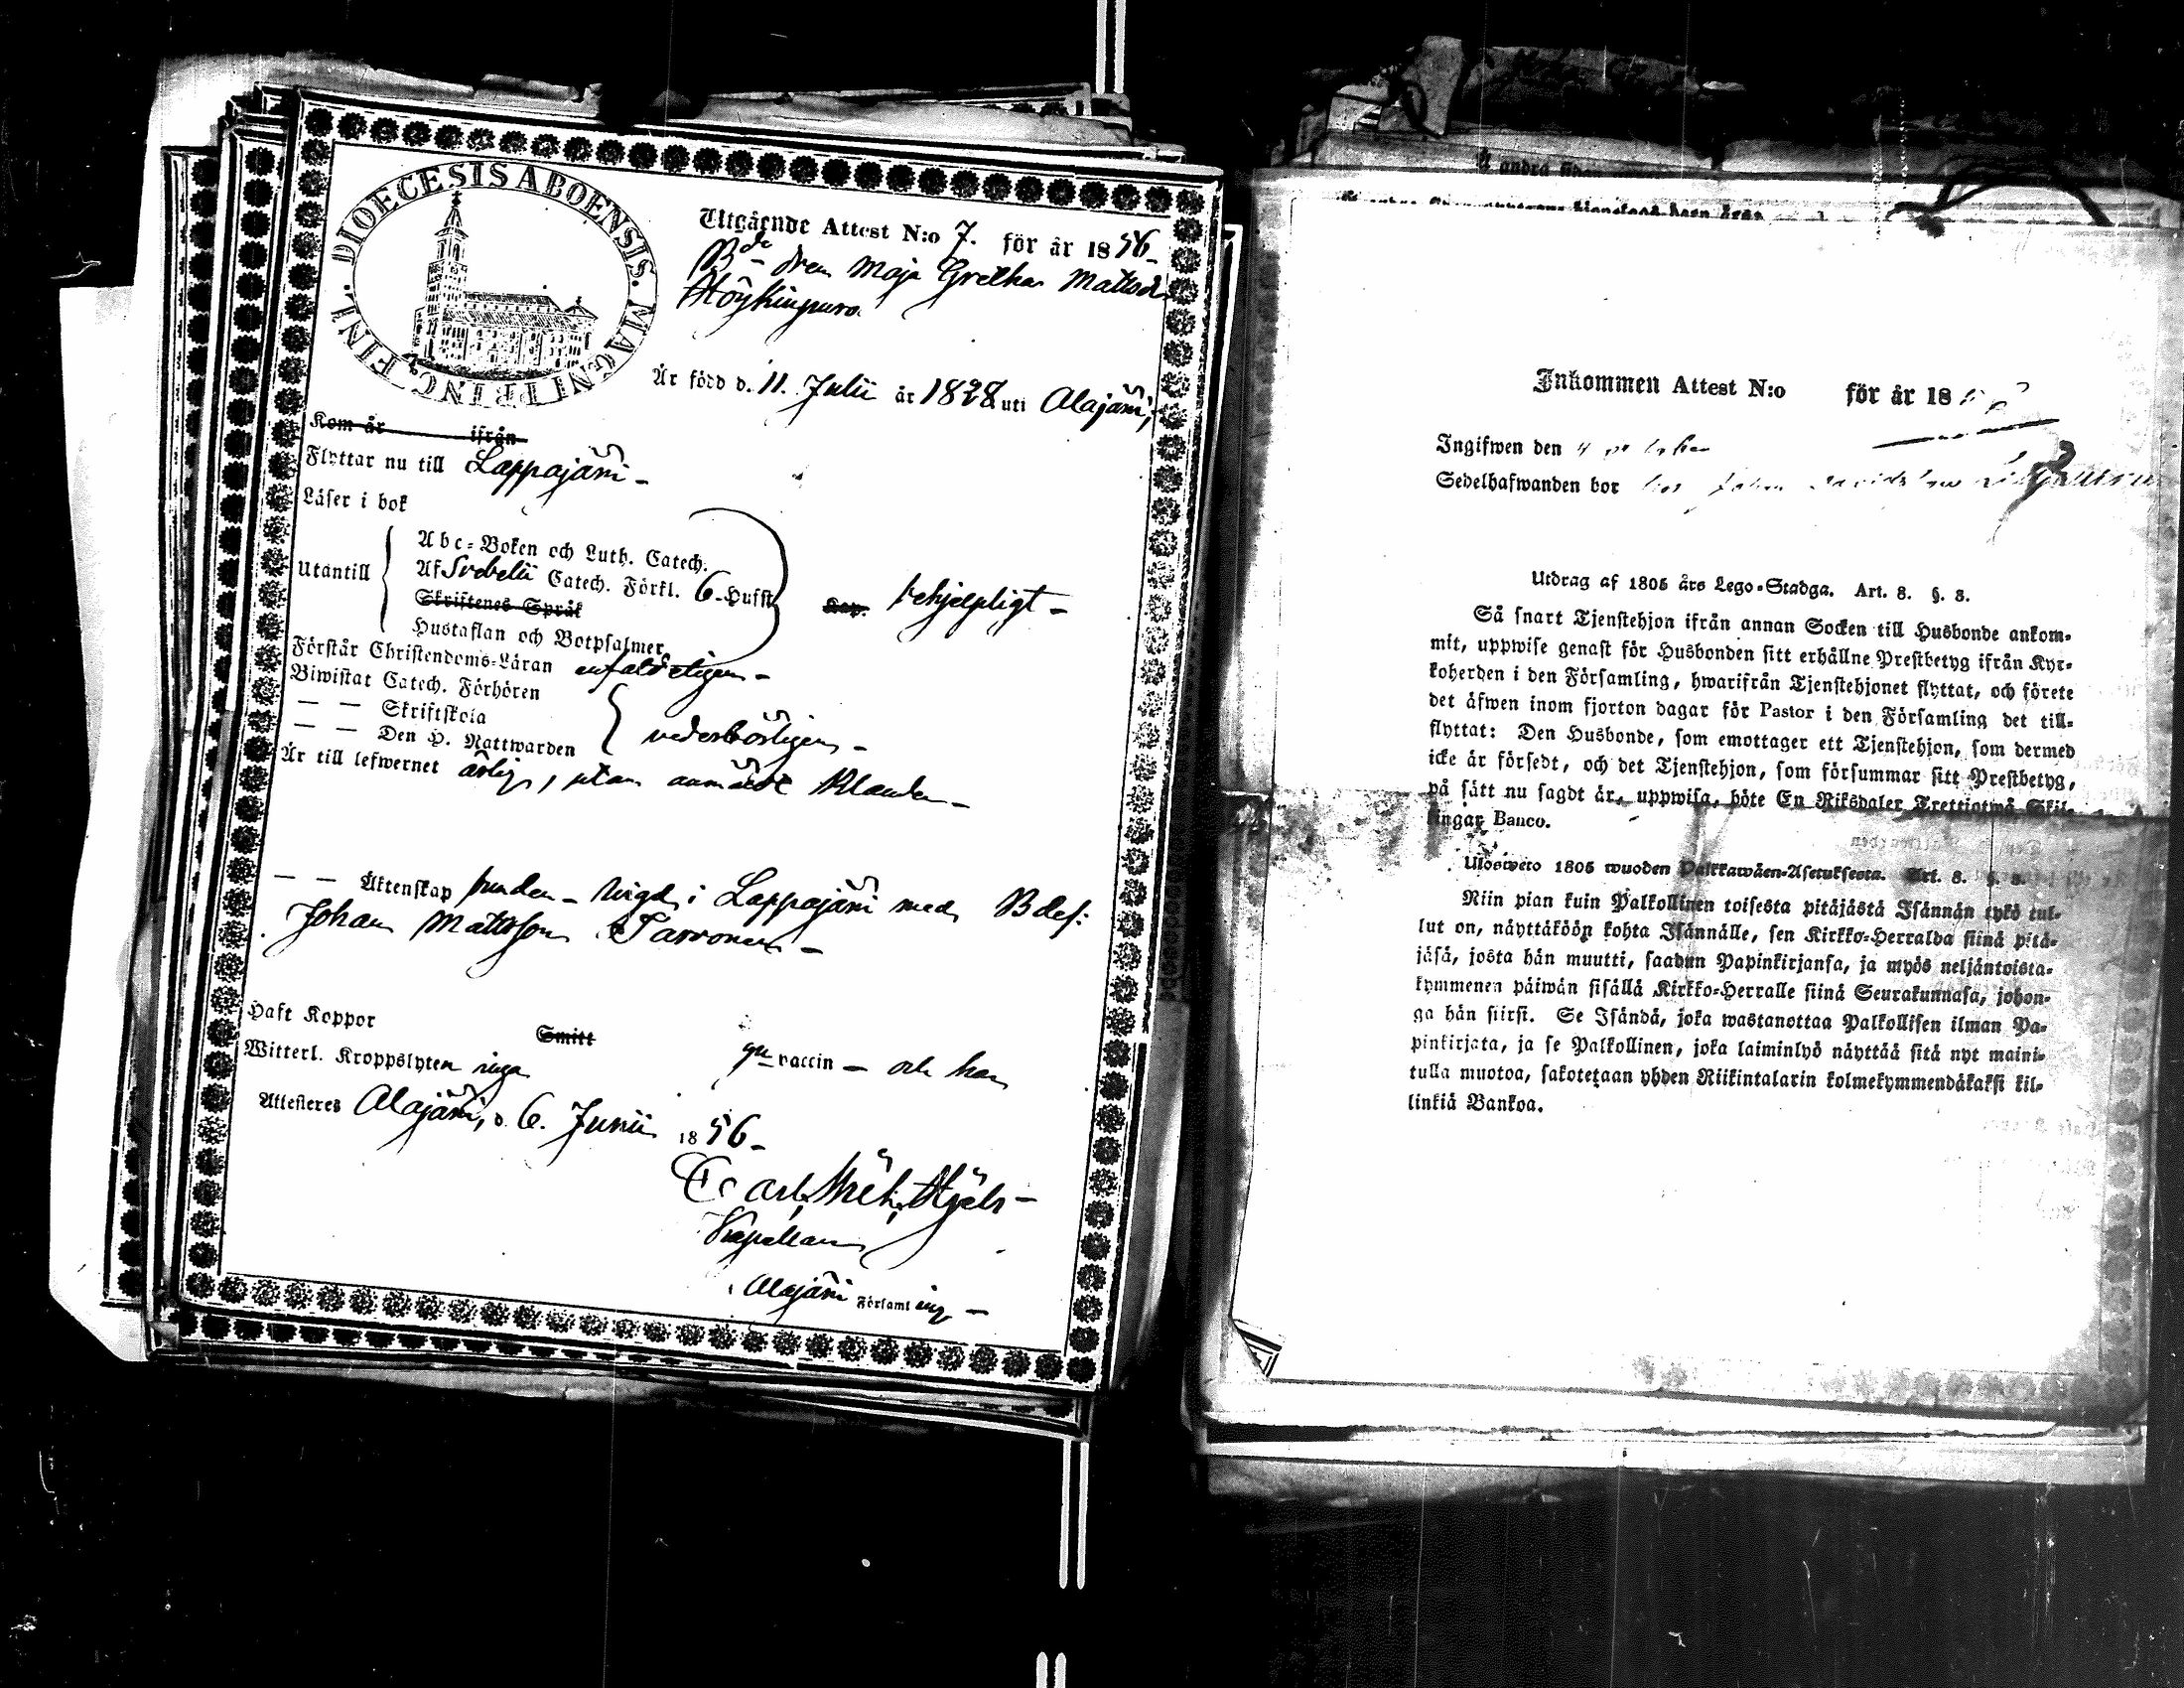 DIOECESIS ABOENSIS. MAGNI PRINC. FINL.
Utgående Attest N:o 7. för år 1856
B:de dren Maja Gretha Mattsd
Höykinpuro
Är född d. 11. Julii år 1828 uti Alajärvi,
Kom år ifrån
Flyttar nu till Lappajärvi
Läser i bok
Utantill
Abc-Boken och Luth. Catech.
Af Svebelii Catech. Förkl. 6 Hufst
Skriftenes Språk
Hustaflan och Botpsalmer
Kap. behjelpligt
Förstår Christendoms-Läran enfaldeligen
Biwistat Catech. Förhören
— — Skriftskola
— — Den H. Nattwarden
vederbörligen
Är till lefwernet ärlig, utan anmärkt klander
— — Äktenskap bunden - vigd i Lappajärvi med Bdes:
Johan Mattsson
Haft Koppor
Smitt
vaccin — och har
Witterl. Kroppslyten inga
Attesteres Alajärvi, d. 6. Junii 1856
Carl
Kapellan
Alajärvi Församling
å andra sidan
Inkommen Attest N:o för år 18
Ingifwen den
Sedelhafwanden bor hos Johan
Utdrag af 1805 års Lego-Stadga. Art. 8. §. 8.
Så snart Tjenstehjon ifrån annan Socken till Husbonde ankom-
mit, uppwise genast för Husbonden sitt erhållne Prestbetyg ifrån Kyr-
koherden i den Församling, hwarifrån Tjenstehjonet flyttat, och förete
det äfwen inom fjorton dagar för Pastor i den Församling det till-
flyttat: Den Husbonde, som emottager ett Tjenstehjon, som dermed
icke är försedt, och det Tjenstehjon, som försummar sitt Prestbetyg,
på sätt nu sagdt är, uppwisa, böte En Riksdaler Trettiotwå Skil-
lingar Banco.
Ulosweto 1805 wuoden Palkkawäen-Asetuksesta. Art. 8. §. 8.
Niin pian kuin Palkollinen toisesta pitäjästä Isännän tykö tul-
lut on, näyttäköön kohta Isännälle, sen Kirkko-Herralda siinä pitä-
jäsä, josta hän muutti, saadun Papinkirjansa, ja myös neljäntoista-
kymmenen päiwän sisällä Kirkko-Herralle siinä Seurakunnasa, johon-
ga hän siirsi. Se Isändä, joka wastanottaa Palkollisen ilman Pa-
pinkirjata, ja se Palkollinen, joka laiminlyö näyttää sitä nyt maini-
tulla muotoa, sakotetaan yhden Riikintalarin kolmekymmendäkaksi kil-
linkiä Bankoa.